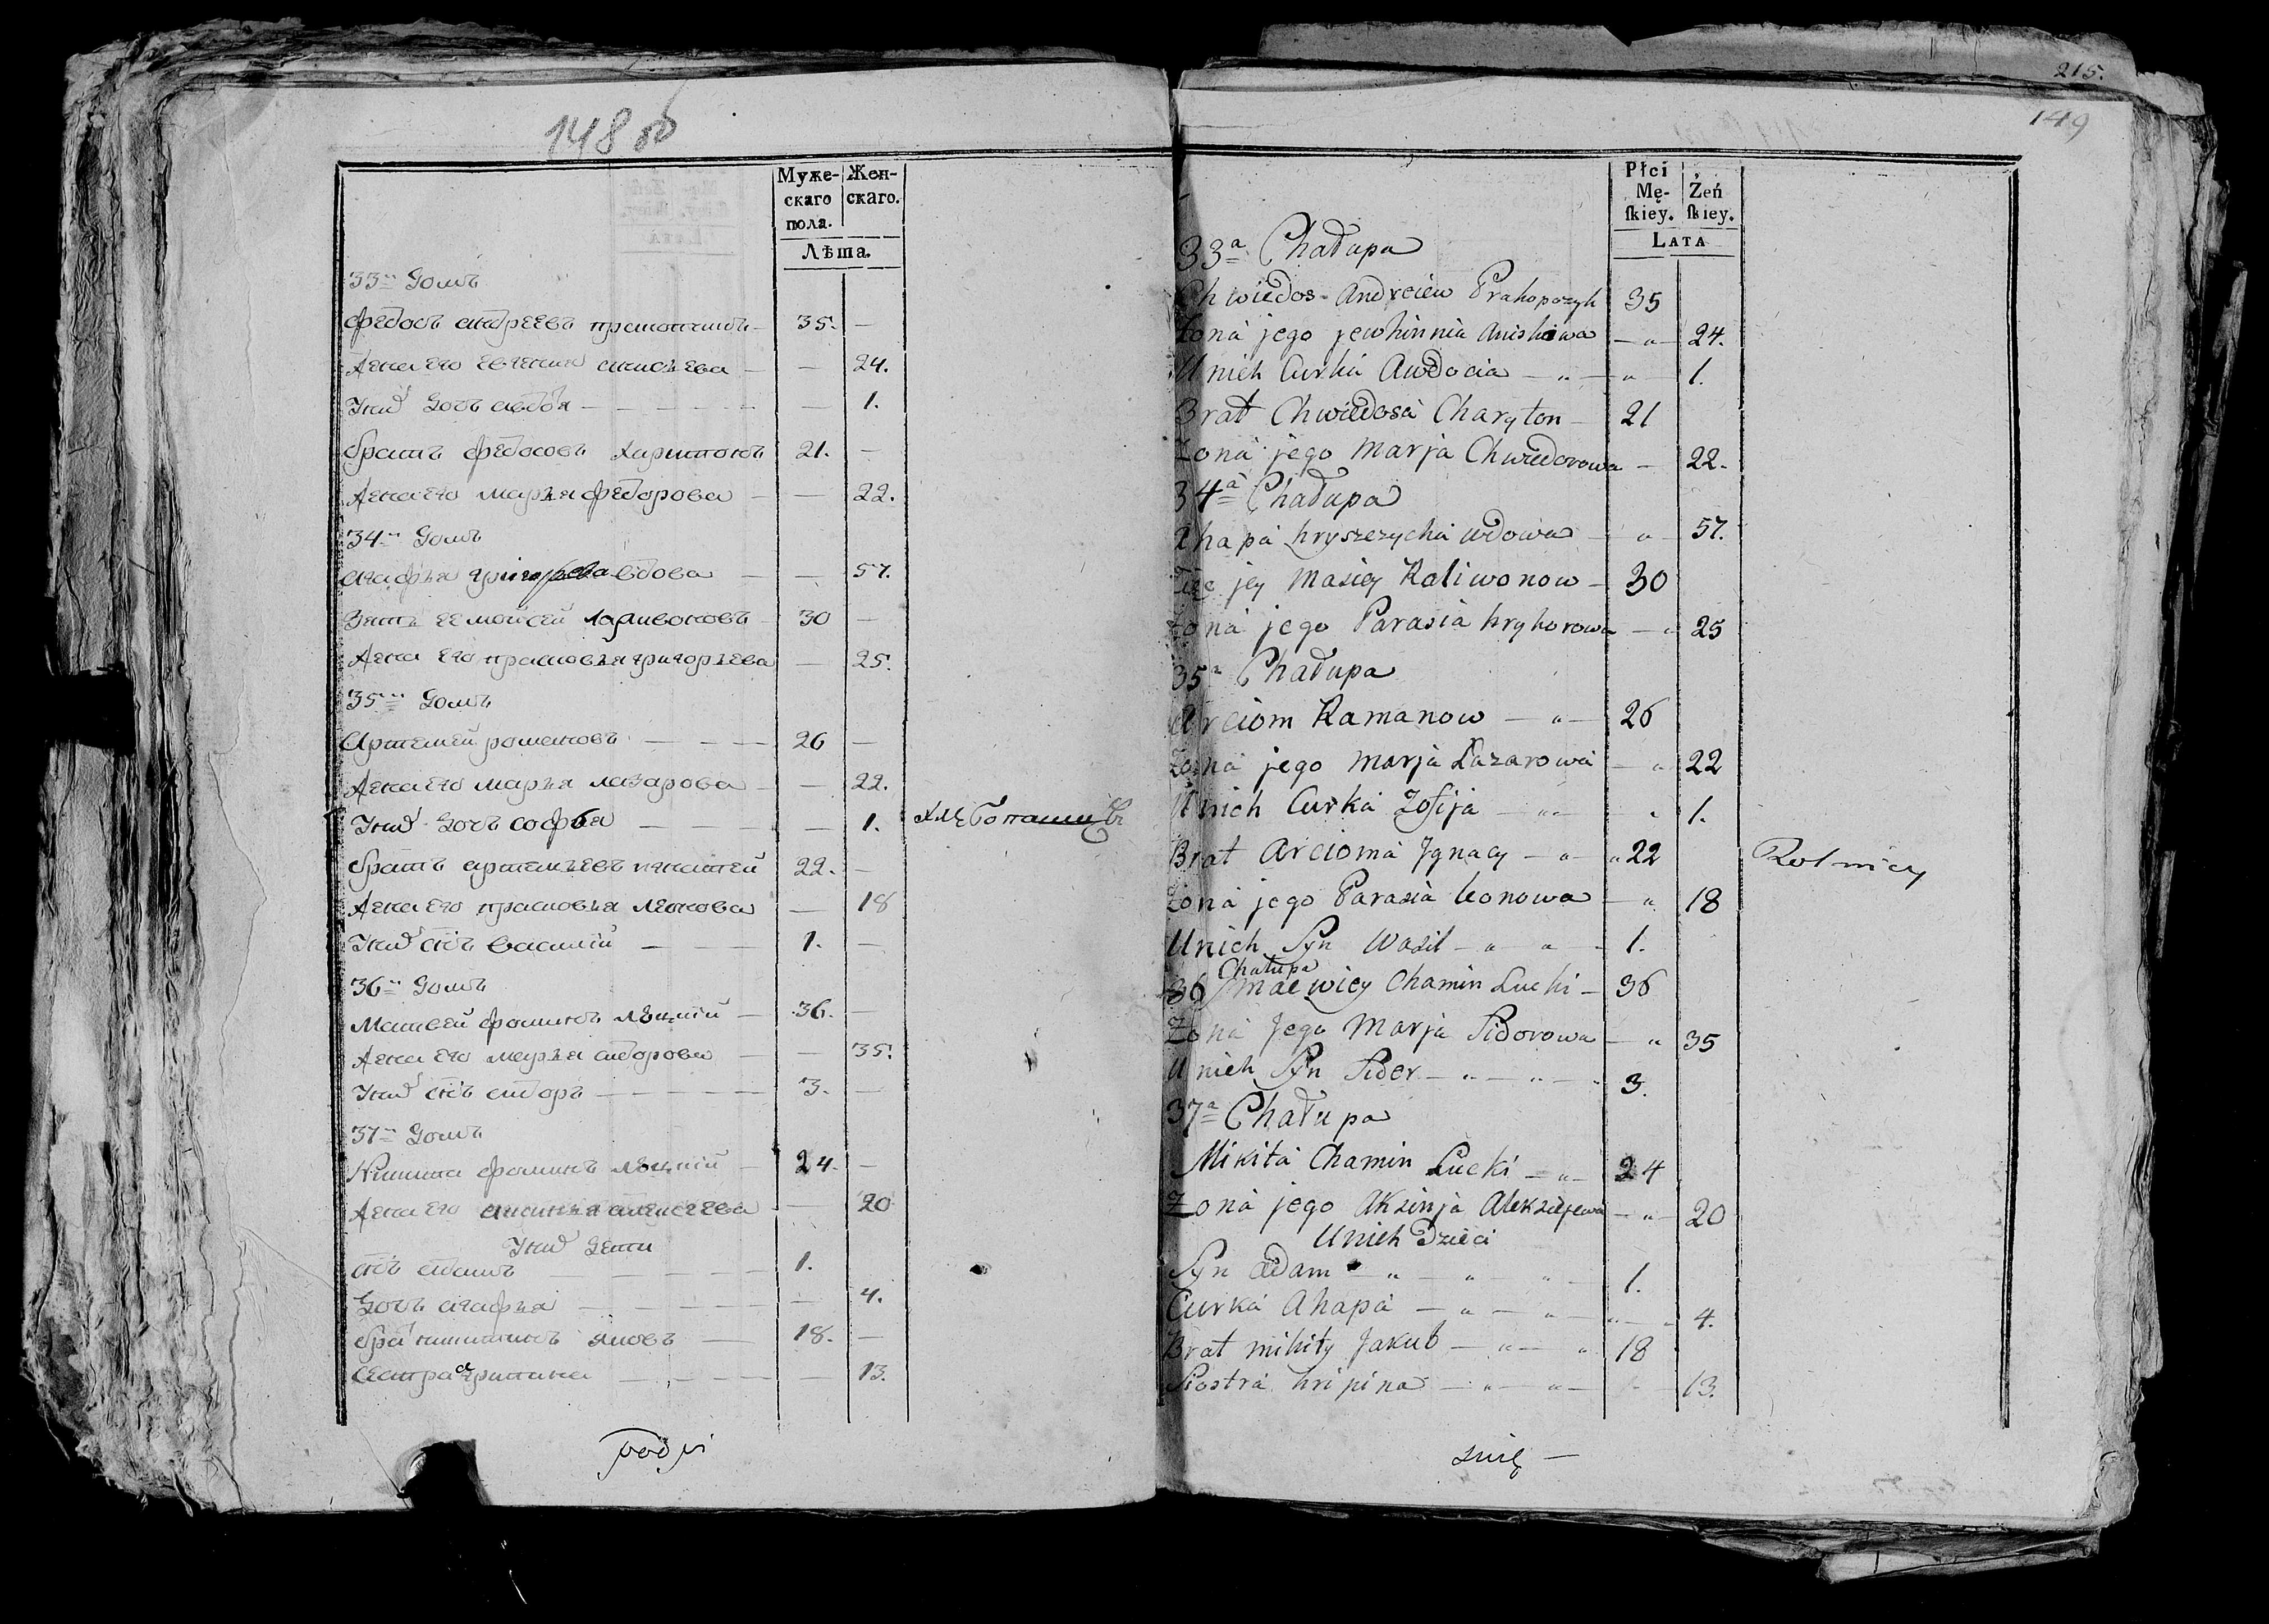 148 об
Муже-
скаго
пола.
Жен-
скаго.
Лѣта.
33й Домъ
Федосъ андреевъ прокопчикъ 35. —
Жена его евгения анисьева — 24.
У них доч авдотя — 1.
братъ федосовъ харитонъ 21. —
Жена его марья федорова — 22.
34й Домъ
агафья григорьева вдова — 57.
Зять ее мойсей ларивоновъ 30 —
Жена его прасковья григорьева — 25.
35й Домъ
артемей романовъ 26 —
Жена его марья лазарова — 22.
У них дочь софья — 1.
хлѣбопашцы
братъ артемьевъ игнатей 22. —
Жена его прасковья леонова — 18
У них снъ василий 1. —
36й Домъ
Матвей фоминъ луцкий 36. —
Жена его марья сидорова — 35.
У них снъ сидоръ 3. —
37й Домъ
Никита фоминъ луцкий 24. —
Жена его аксинья алексеева — 20
У них дети
снъ адамъ 1.
Дочь агафья — 4.
бра никитинъ яковъ 18. —
Сестра агрипина — 13.
215.
149
Płci
Mę-
ſkiey.
Żeń
ſkiey.
LATA
33a Chałupa
Chwiedos Andreiew Prakopczyk 35
Żona jego jewhinnia anisiiowa — " — 24.
U nich Curka Awdocia — " — " — 1.
Brat Chwiedosa Charyton — 21
Żona jego Marja Chwiedorowa — 22.
34a Chałupa
Ahapa hryszczycha wdowa — " — 57.
Zięć jey Masiey Raliwonow — 30
Żona jego Parasia hryhorowa — " 25
35a Chałupa
Arciom Ramanow — " — 26
Żona jego Marja Łazarowa — " 22
U nich Curka Zofija — " — " 1.
Brat Arcioma Jgnacy — " — " 22
Rolnicy
Żona jego Parasia Leonowa — " 18
U nich Syn Wasil — " " — 1.
Chałupa
36 maćwiey Chamin Łucki — 36
Żona Jego Marja Sidorowa — " 35
U nich Syn Sider — " — " — " 3.
37a Chałupa
Mikita Chamin Łucki — " — 24
Żona jego Aksinja Aleksiejewa — " — 20
U nich Dzieci
Syn adam — " — " — " — 1.
Curka Ahapa — " — " — " — " 4.
Brat mikity Jakub — " — " 18
Siostra hripina — " — " — 13.